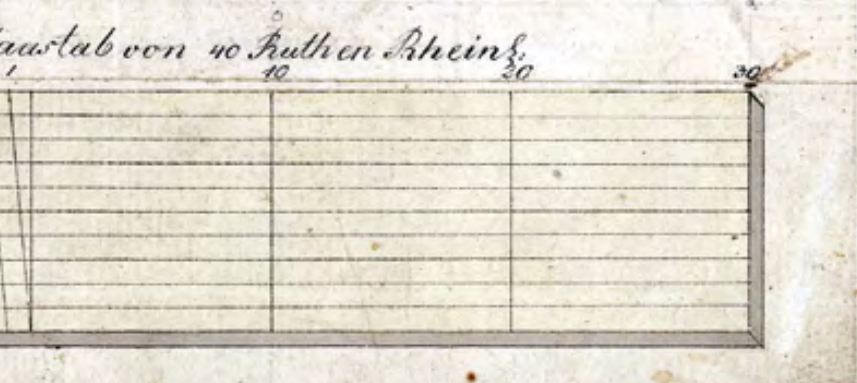 aastab von 40 Ruthen Rheinl.
1 10 20 30